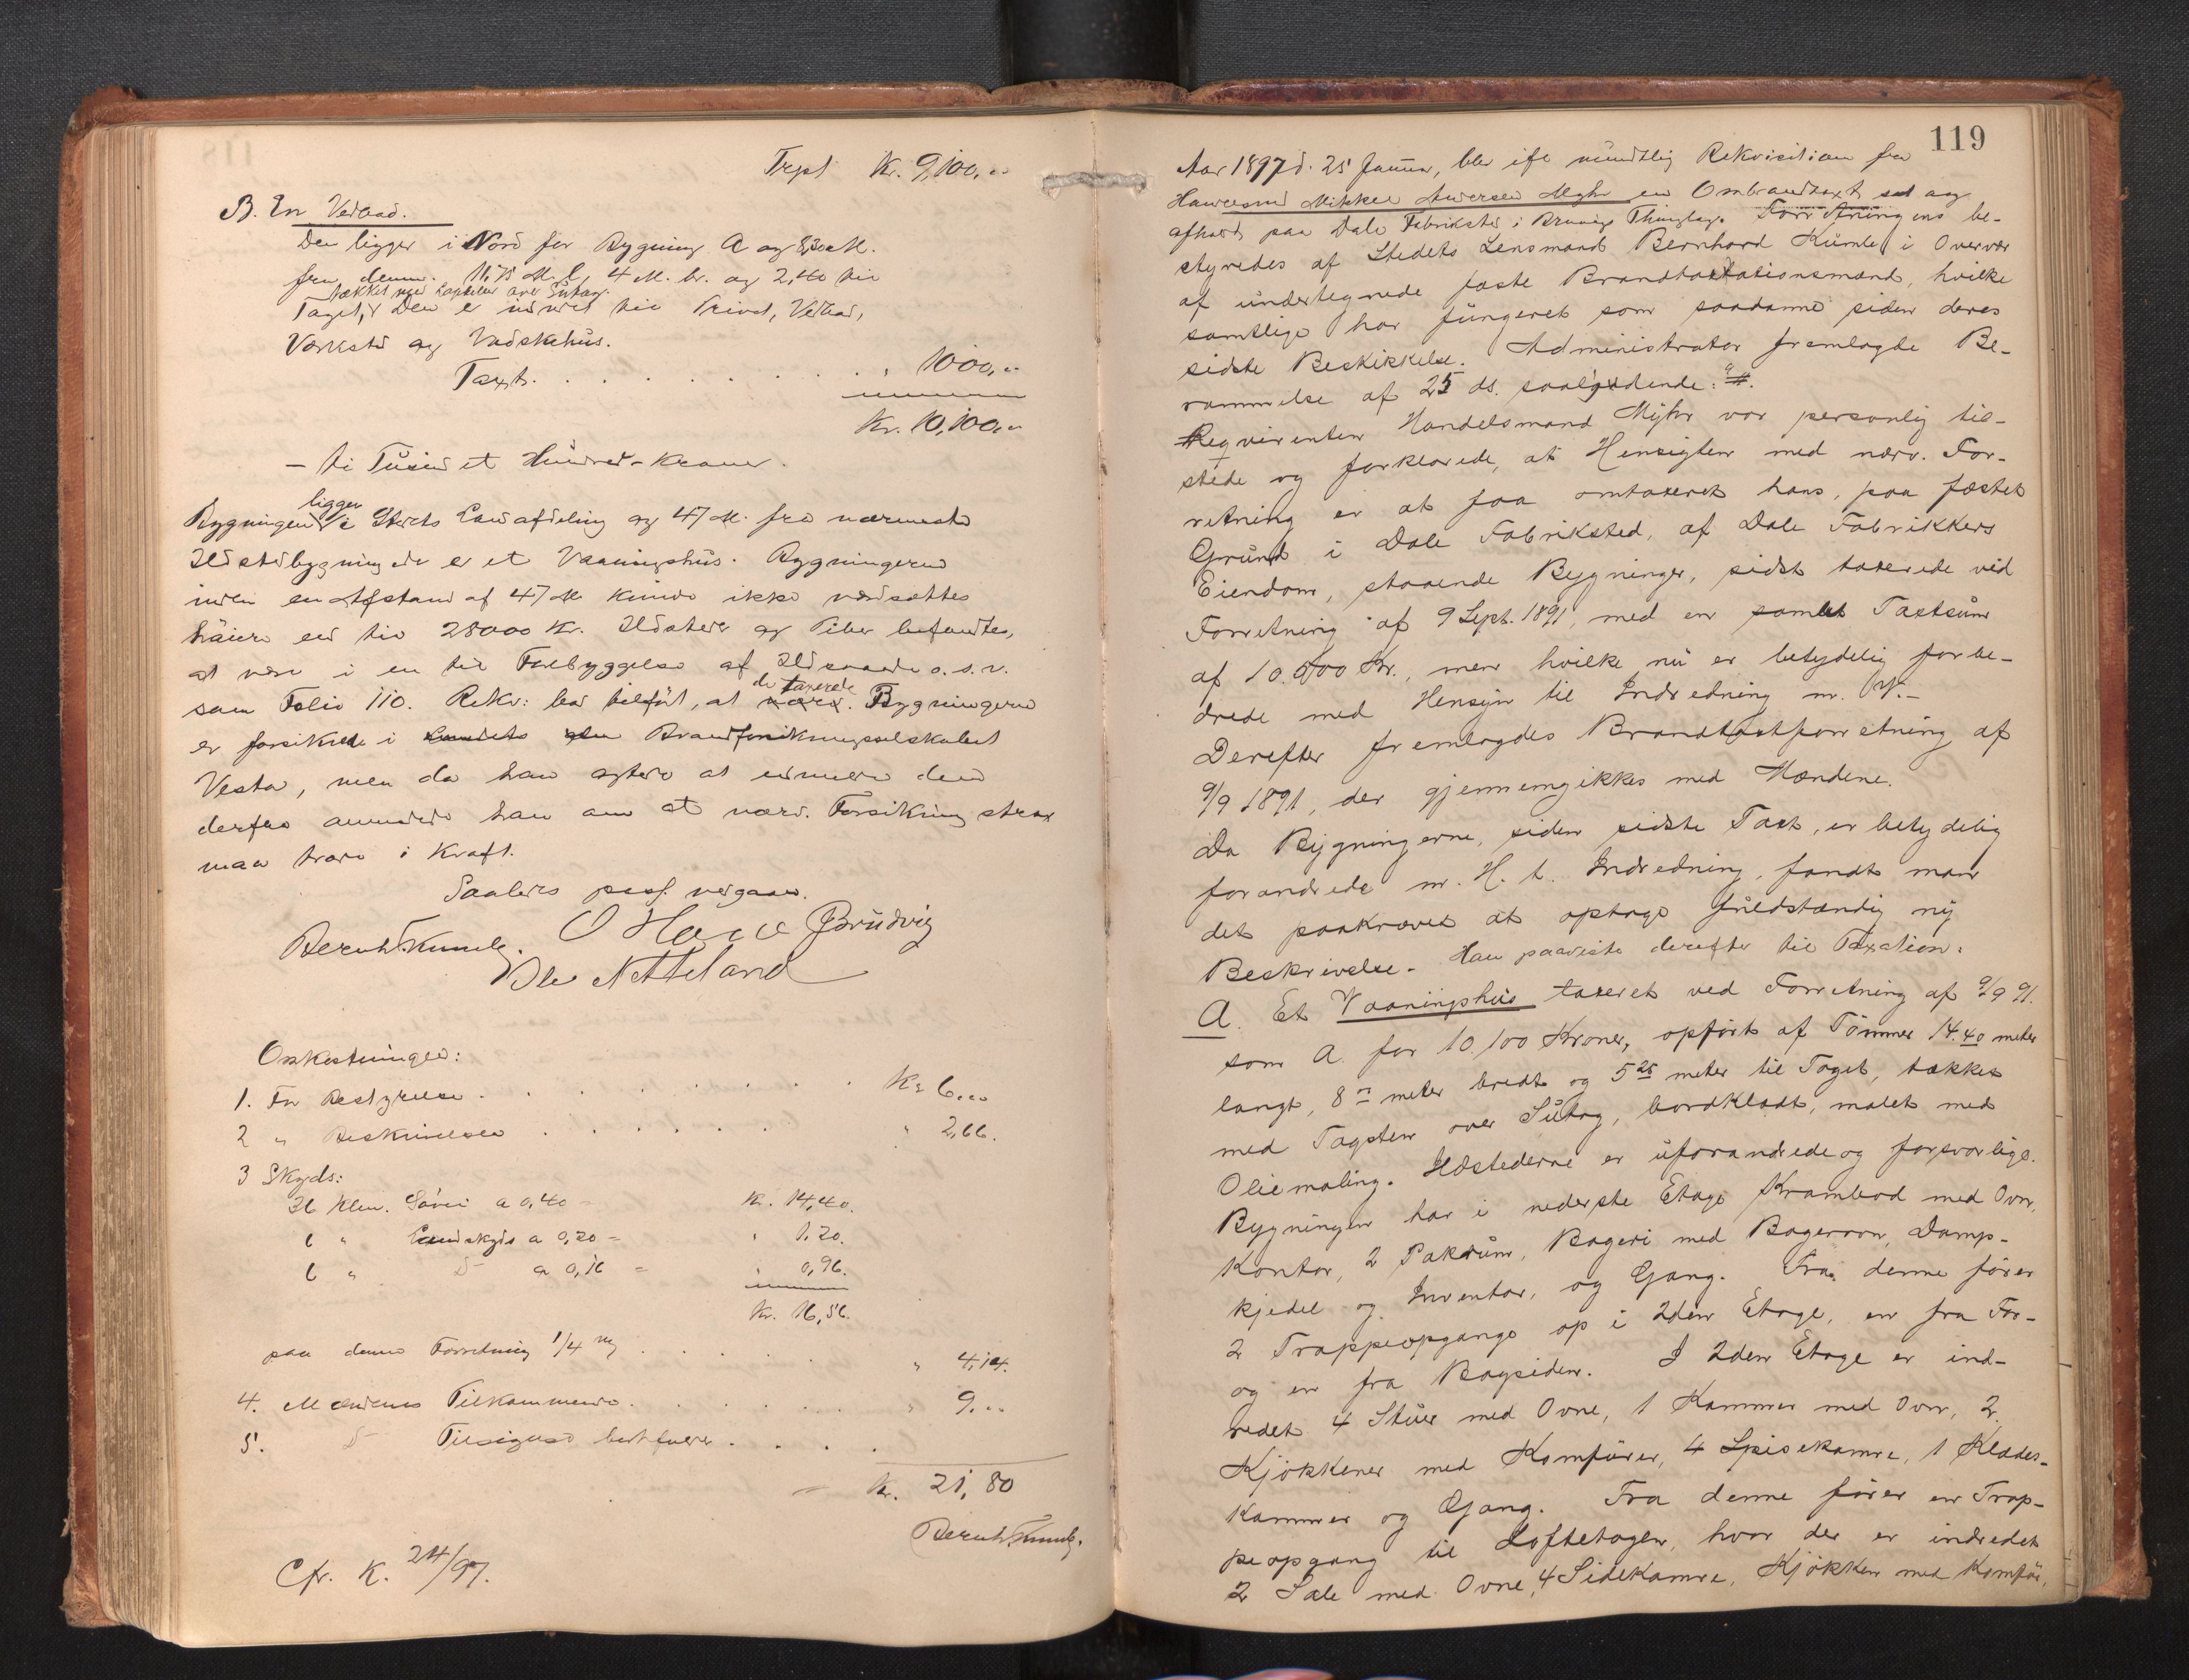 Trpt Kr. 9,100,..
B. En Vedbod.
Den ligger i Nord for Bygning A og 8,30 M.
fra denne. 11,75 M. l, 4 M. br. og 2,40 til
tækket med Tagsten over Sutag.
Taget, Den er indredet til Privet, Vedbod,
Værksted og Vadskehus.
Taxt. . . . . . . . . " 1000,..
Kr. 10,100,..
– ti Tusind et Hundred – Kroner.
ligger
Bygningen i Stedets Landafdeling og 47 M. fra nærmeste
Ildstedbygning der er et Vaaningshus. Bygningerne
inden en Afstand af 47 M kunde ikke værdsættes
høiere end til 28000 Kr. Ildsteder og Piber befandtes,
at være i en til Forebyggelse af Ildsvaade o.s.v.
de taxerede
som Folio 110. Rekv: lod tilføie, at nærv. Bygningerne
er forsikrede i Brandforsikringsselskabet
Vesta, men da han agter at udmelde dem
derfra anmodede han om at nærv. Forsikring strax
maa træde i Kraft.
Saaledes pass. vedgaaes.
Bernh Kumle. O Hans Brudvig
Ole Netteland
Omkostninger:
1. For Bestyrelse . . . . . . . Kr 6,..
2 " Beskrivelsen . . . . . . " 2,66.
3 Skyds:
36 Klm. Søvei a 0,40 = Kr. 14,40.
6 " Landskyds a 0,20 = " 1,20.
6 " D- a 0,16 = " 0,96.
Kr. 16,56.
paa denne Forretning 1/4 . . . . " 4,14.
4. Mændenes Tilkommende . . . . . " 9...
5. D- Tilsigelse . . . .
– Kr. 21,80
Bernh Kumle.
Cfr. K. 24/97.
119
Aar 1897 d. 25 Januar, blev ifl mundtlig Rekvisition fra
Handelsmand Mikkel Andersen Myhr en Ombrandtaxt sat og
afholdt paa Dale Fabriksted i Bruvigs Thinglag. Forretningens be-
styredes af Stedets Lensmand Bernhard Kumle i Overvær
af undertegnede faste Brandtaxtationsmænd, hvilke
samtlige har fungeret som saadanne siden deres
sidste Beskikkelse. Administrator fremlagde Be-
rammelse af 25 ds. saalydende: "#.
Reqvirenten Handelsmand Myhr var personlig til-
stede og forklarede, at Hensigten med nærv. For-
retning er at faa omtaxeret hans, paa fæstet
Grund i Dale Fabriksted, af Dale Fabrikkers
Eiendom, staaende Bygninger, sidst taxerede ved
Forretning af 9 Sept. 1891, med en samlet Taxtsum
af 10.600 Kr., men hvilke nu er betydelig forbe-
drede med Hensyn til Indredning m. V.-
Derefter fremlagdes Brandtaxtforretning af
9/9 1891, der gjennemgikkes med Mændene.
Da Bygningerne, siden sidste Taxt, er betydelig
forandrede m. H. t. Indredning, fandt man
det paakrævet at optage fuldstændig ny
Beskrivelse. Han paaviste derefter til Taxation:
A. Et Vaaningshus taxeret ved Forretning af 9/9 91.
som A. for 10.100 Kroner, opført af Tømmer 14.40 meter
langt, 8 meter bredt og 5 25 meter til Taget, tækket
med Tagsten over Sutag, bordklædt, malet med
Oliemaling. Ildstederne er uforandrede og forsvarlige.
Bygningen har i nederste Etage Krambod med Ovn,
Kontor, 2 Pakrum, Bageri med Bagerovn, Damp-
kjedel og Inventar, og Gang. Fra denne fører
2 Trappeopgange op i 2den Etage, en fra For-
og en fra Bagsiden. I 2den Etage er ind-
redet 4 Stuer med Ovne, 1 Kammer med Ovn, 2
Kjøkkener med Komfurer, 4 Spisekamre, 1 Klædes-
kammer og Gang. Fra denne fører en Trap-
peopgang til Loftetagen, hvor der er indredet
2 Sale med Ovne, 4 Sidekamre, Kjøkken med Komfur,